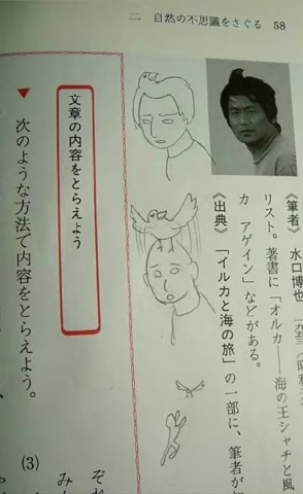 二 自然の不思議をさぐる 58
《筆者》 水口博也
リスト。著書に「オルカ――海の王シャチと風
カ アゲイン」などがある。
《出典》 「イルカと海の旅」の一部に、筆者が
文章の内容をとらえよう
▼ 次のような方法で内容をとらえよう。
(3)